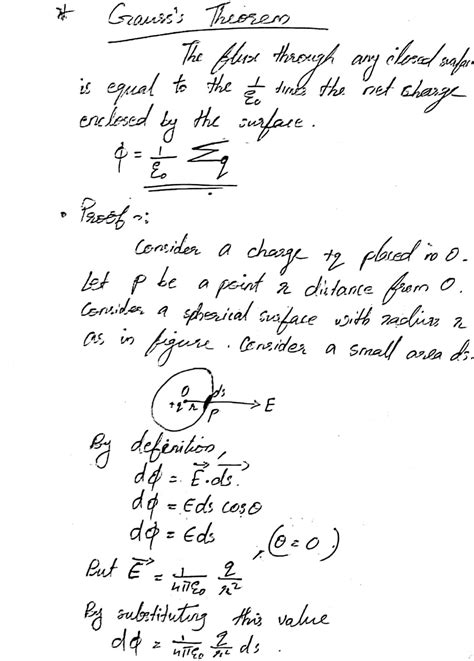 * Gauss's Theorem
The flux through any closed surface
is equal to the 1/ε₀ times the net charge
enclosed by the surface.
ϕ = 1/ε₀ Σq
• Proof :
Consider a charge +q placed in O.
Let P be a point r distance from O.
Consider a spherical surface with radius r
as in figure. Consider a small area ds.
O ds
+q r P → E
By definition,
dϕ = E⃗ · ds⃗
dϕ = Eds cosθ
dϕ = Eds , (θ = 0)
But E⃗ = 1/4πε₀ q/r²
By substituting this value
dϕ = 1/4πε₀ q/r² ds.